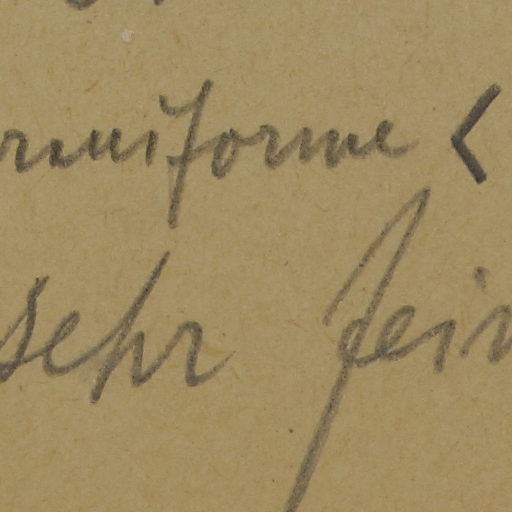 rmiforme <
sehr fein